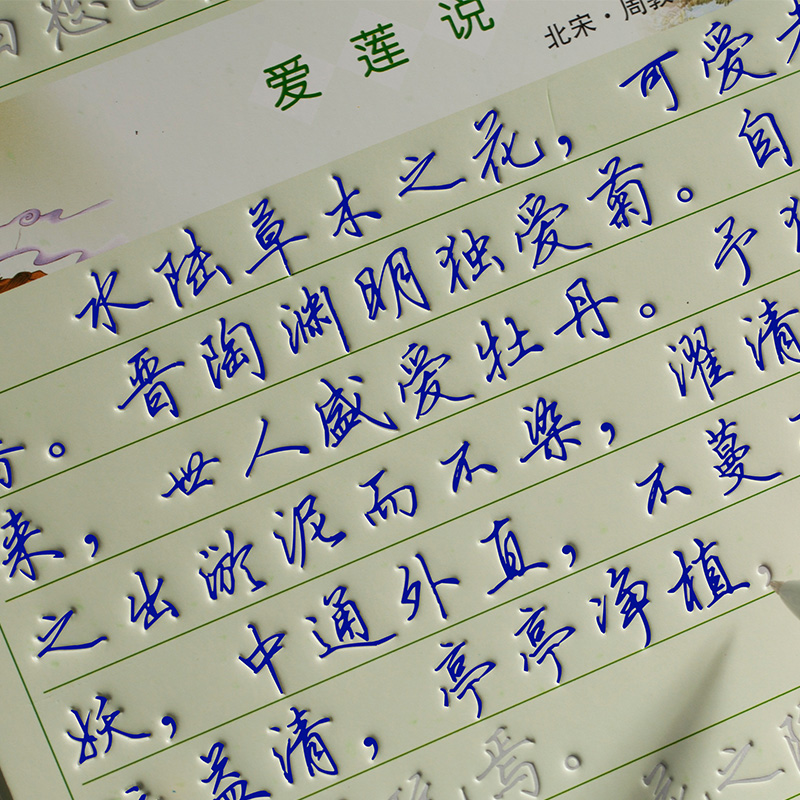 爱莲说
北宋·周敦
水陆草木之花，可爱者
。晋陶渊明独爱菊。自
来，世人盛爱牡丹。予独
之出淤泥而不染，濯清
妖，中通外直，不蔓
益清，亭亭净植，
焉。 之隐